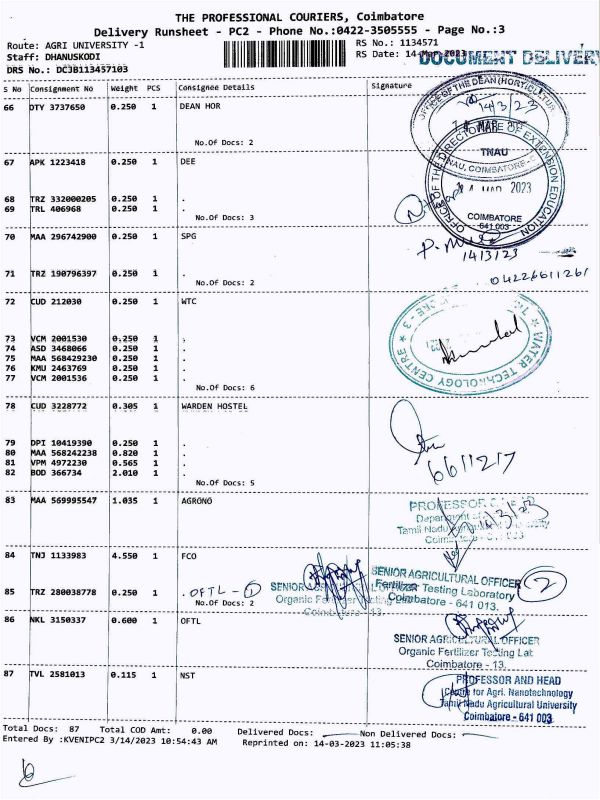 THE PROFESSIONAL COURIERS, Coimbatore
Delivery Runsheet - PC2 - Phone No.:0422-3505555 - Page No.:3
Route: AGRI UNIVERSITY -1
RS No.: 1134571
Staff: DHANUSKODI
RS Date: 14-Mar-2023
DOCUMENT DELIVERY
DRS No.: DCJB113457103
S No Consignment No Weight PCS Consignee Details Signature
66 DTY 3737650 0.250 1 DEAN HOR
OFFICE OF THE DEAN (HORTICULTURE
14/3/23
No.Of Docs: 2
67 APK 1223418 0.250 1 DEE
OFFICE OF THE DIRECTORATE OF EXTENSION EDUCATION
TNAU
TNAU, COIMBATORE
MAR 2023
COIMBATORE
641 003
68 TRZ 332000205 0.250 1 .
69 TRL 406968 0.250 1 .
No.Of Docs: 3
70 MAA 296742900 0.250 1 SPG
14/3/23
71 TRZ 190796397 0.250 1 .
No.Of Docs: 2
04226611261
72 CUD 212030 0.250 1 WTC
WATER TECHNOLOGY CENTRE
73 VCM 2001530 0.250 1 .
74 ASD 3468066 0.250 1 .
75 MAA 568429230 0.250 1 .
76 KMU 2463769 0.250 1 .
77 VCM 2001536 0.250 1 .
No.Of Docs: 6
78 CUD 3228772 0.305 1 WARDEN HOSTEL
79 DPI 10419390 0.250 1 .
80 MAA 568242238 0.820 1 .
81 VPM 4972230 0.565 1 .
82 BOD 366734 2.010 1 .
No.Of Docs: 5
6611217
83 MAA 569995547 1.035 1 AGRONO
PROFESSOR
Department of
Tamil Nadu
641 003
84 TNJ 1133983 4.550 1 FCO
SENIOR AGRICULTURAL OFFICER
Fertilizer Testing Laboratory
Coimbatore - 641 013.
2
85 TRZ 280038778 0.250 1 . OFTL - 1
No.Of Docs: 2
SENIOR
Organic
13.
86 NKL 3150337 0.600 1 OFTL
SENIOR AGRICULTURAL OFFICER
Organic Fertilizer Testing Lab
Coimbatore - 13.
87 TVL 2581013 0.115 1 NST
PROFESSOR AND HEAD
Centre for Agri. Nanotechnology
Tamil Nadu Agricultural University
Coimbatore - 641 003
Total Docs: 87 Total COD Amt: 0.00 Delivered Docs: Non Delivered Docs:
Entered By :KVENIPC2 3/14/2023 10:54:43 AM Reprinted on: 14-03-2023 11:05:38